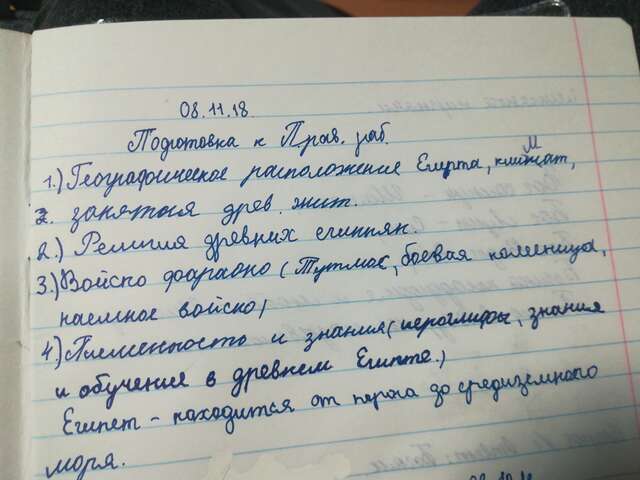 08.11.18.
Подготовка к Прав. раб.
1.) Географическое расположение Египта, климат,
2. занятия древ. жит.
2.) Религия древних египтян.
3.) Войско фараоно (Тутмос, боевая колесница,
наемное войско)
4.) Писменность и знания (иероглифы, знания
и обучение в древнем Египте.)
Египет - находится от порога до средиземного
моря.